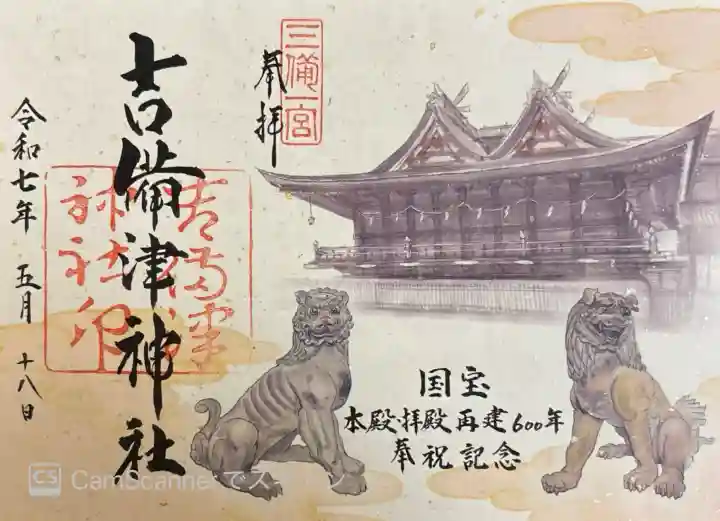 三備一宮
奉拝
吉備津神社
吉備津
神社印
令和七年 五月 十八日
国宝
本殿・拝殿再建600年
奉祝記念
CS CamScanner でスキャン